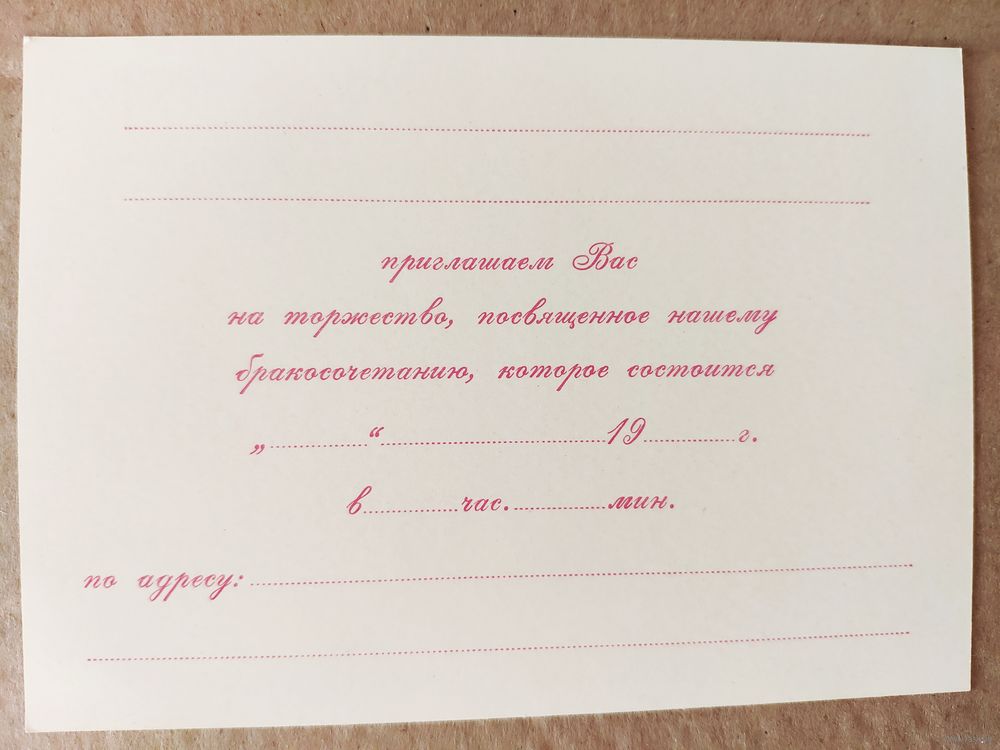 приглашаем Вас
на торжество, посвященное нашему
бракосочетанию, которое состоится
„..............“.................................19..............г.
в..............час...............мин.
по адресу:....................................................